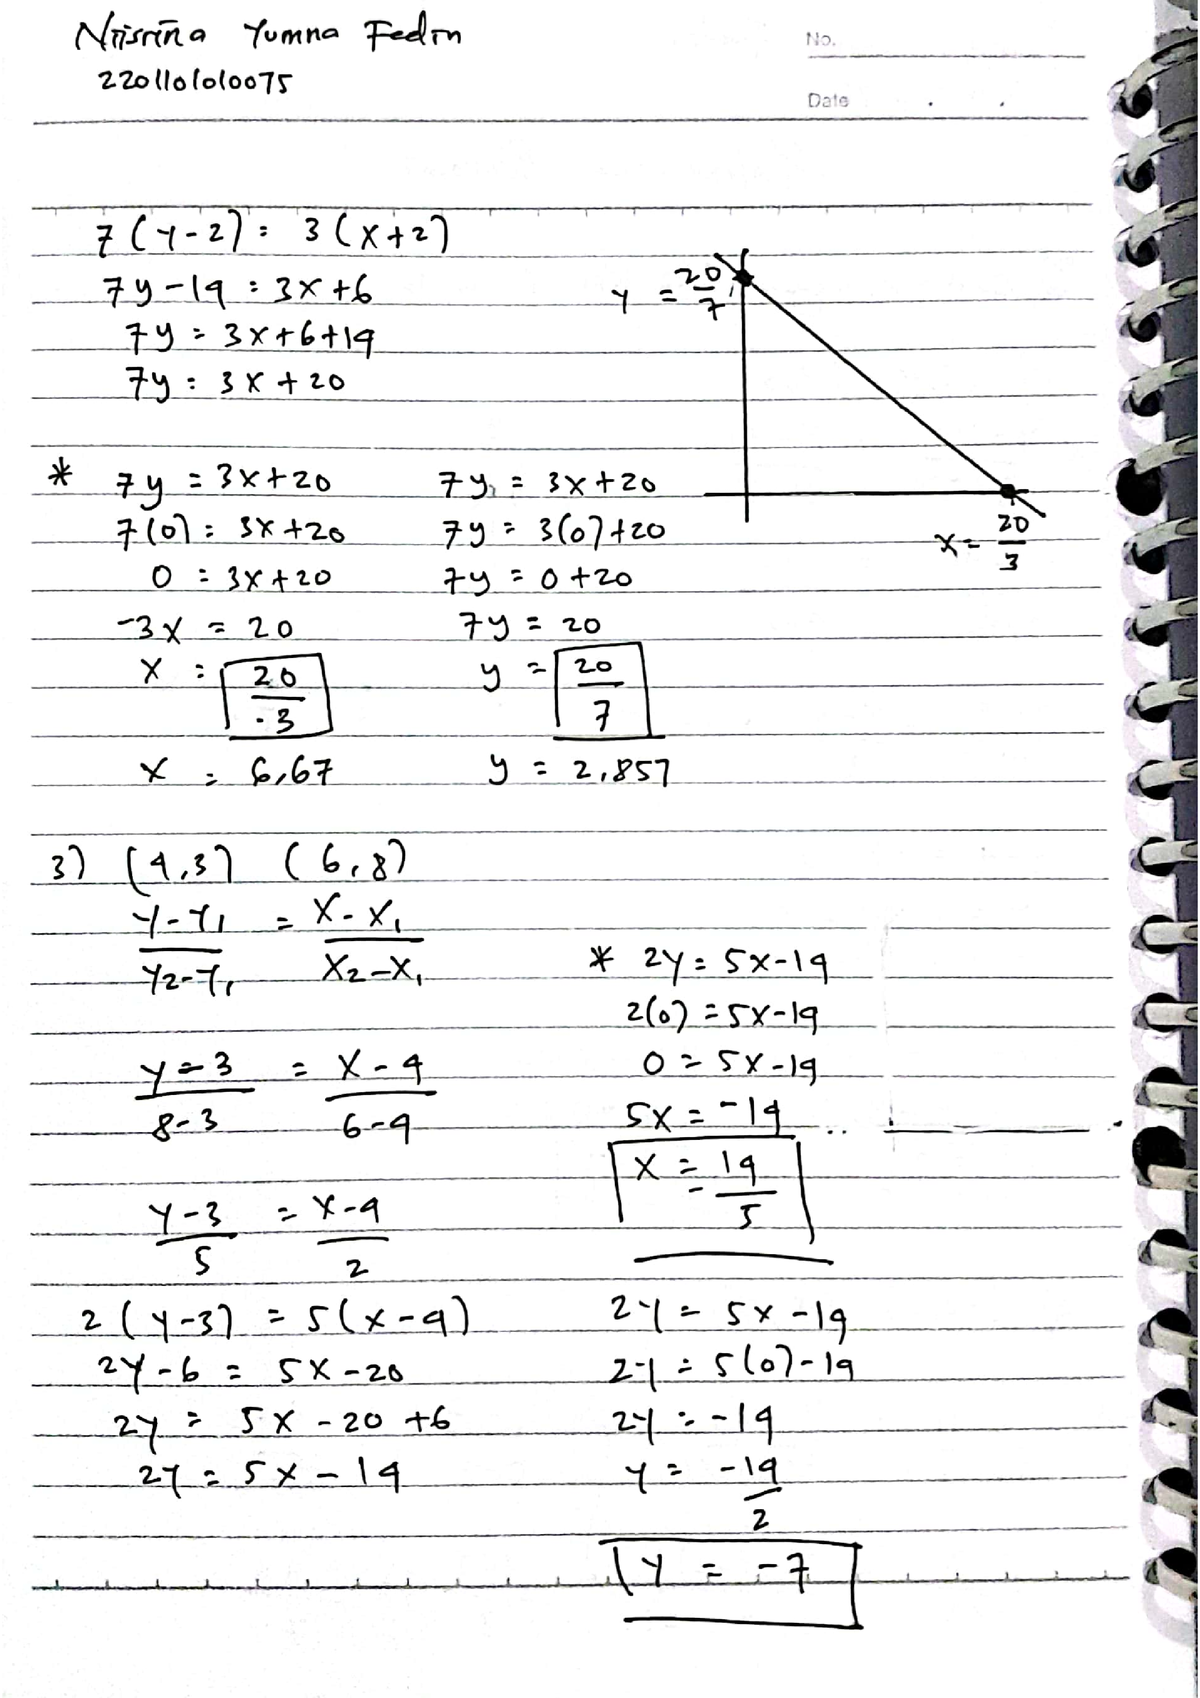 Niisrina Yumna Fedrn
2201101010075
No.
Date
7(y-2) = 3(x+2)
7y-14 = 3x+6
7y = 3x+6+14
7y = 3x+20
y = 20/7
x = 20/3
* 7y = 3x+20
7(0) = 3x+20
0 = 3x+20
-3x = 20
x = 20/-3
x = 6,67
7y = 3x+20
7y = 3(0)+20
7y = 0+20
7y = 20
y = 20/7
y = 2,857
3) (4,3) (6,8)
y-y1/y2-y1 = x-x1/x2-x1
y-3/8-3 = x-4/6-4
y-3/5 = x-4/2
2(y-3) = 5(x-4)
2y-6 = 5x-20
2y = 5x-20+6
2y = 5x-14
* 2y = 5x-14
2(0) = 5x-14
0 = 5x-14
5x = -14
x = 14/5
2y = 5x-14
2y = 5(0)-14
2y = -14
y = -14/2
y = -7